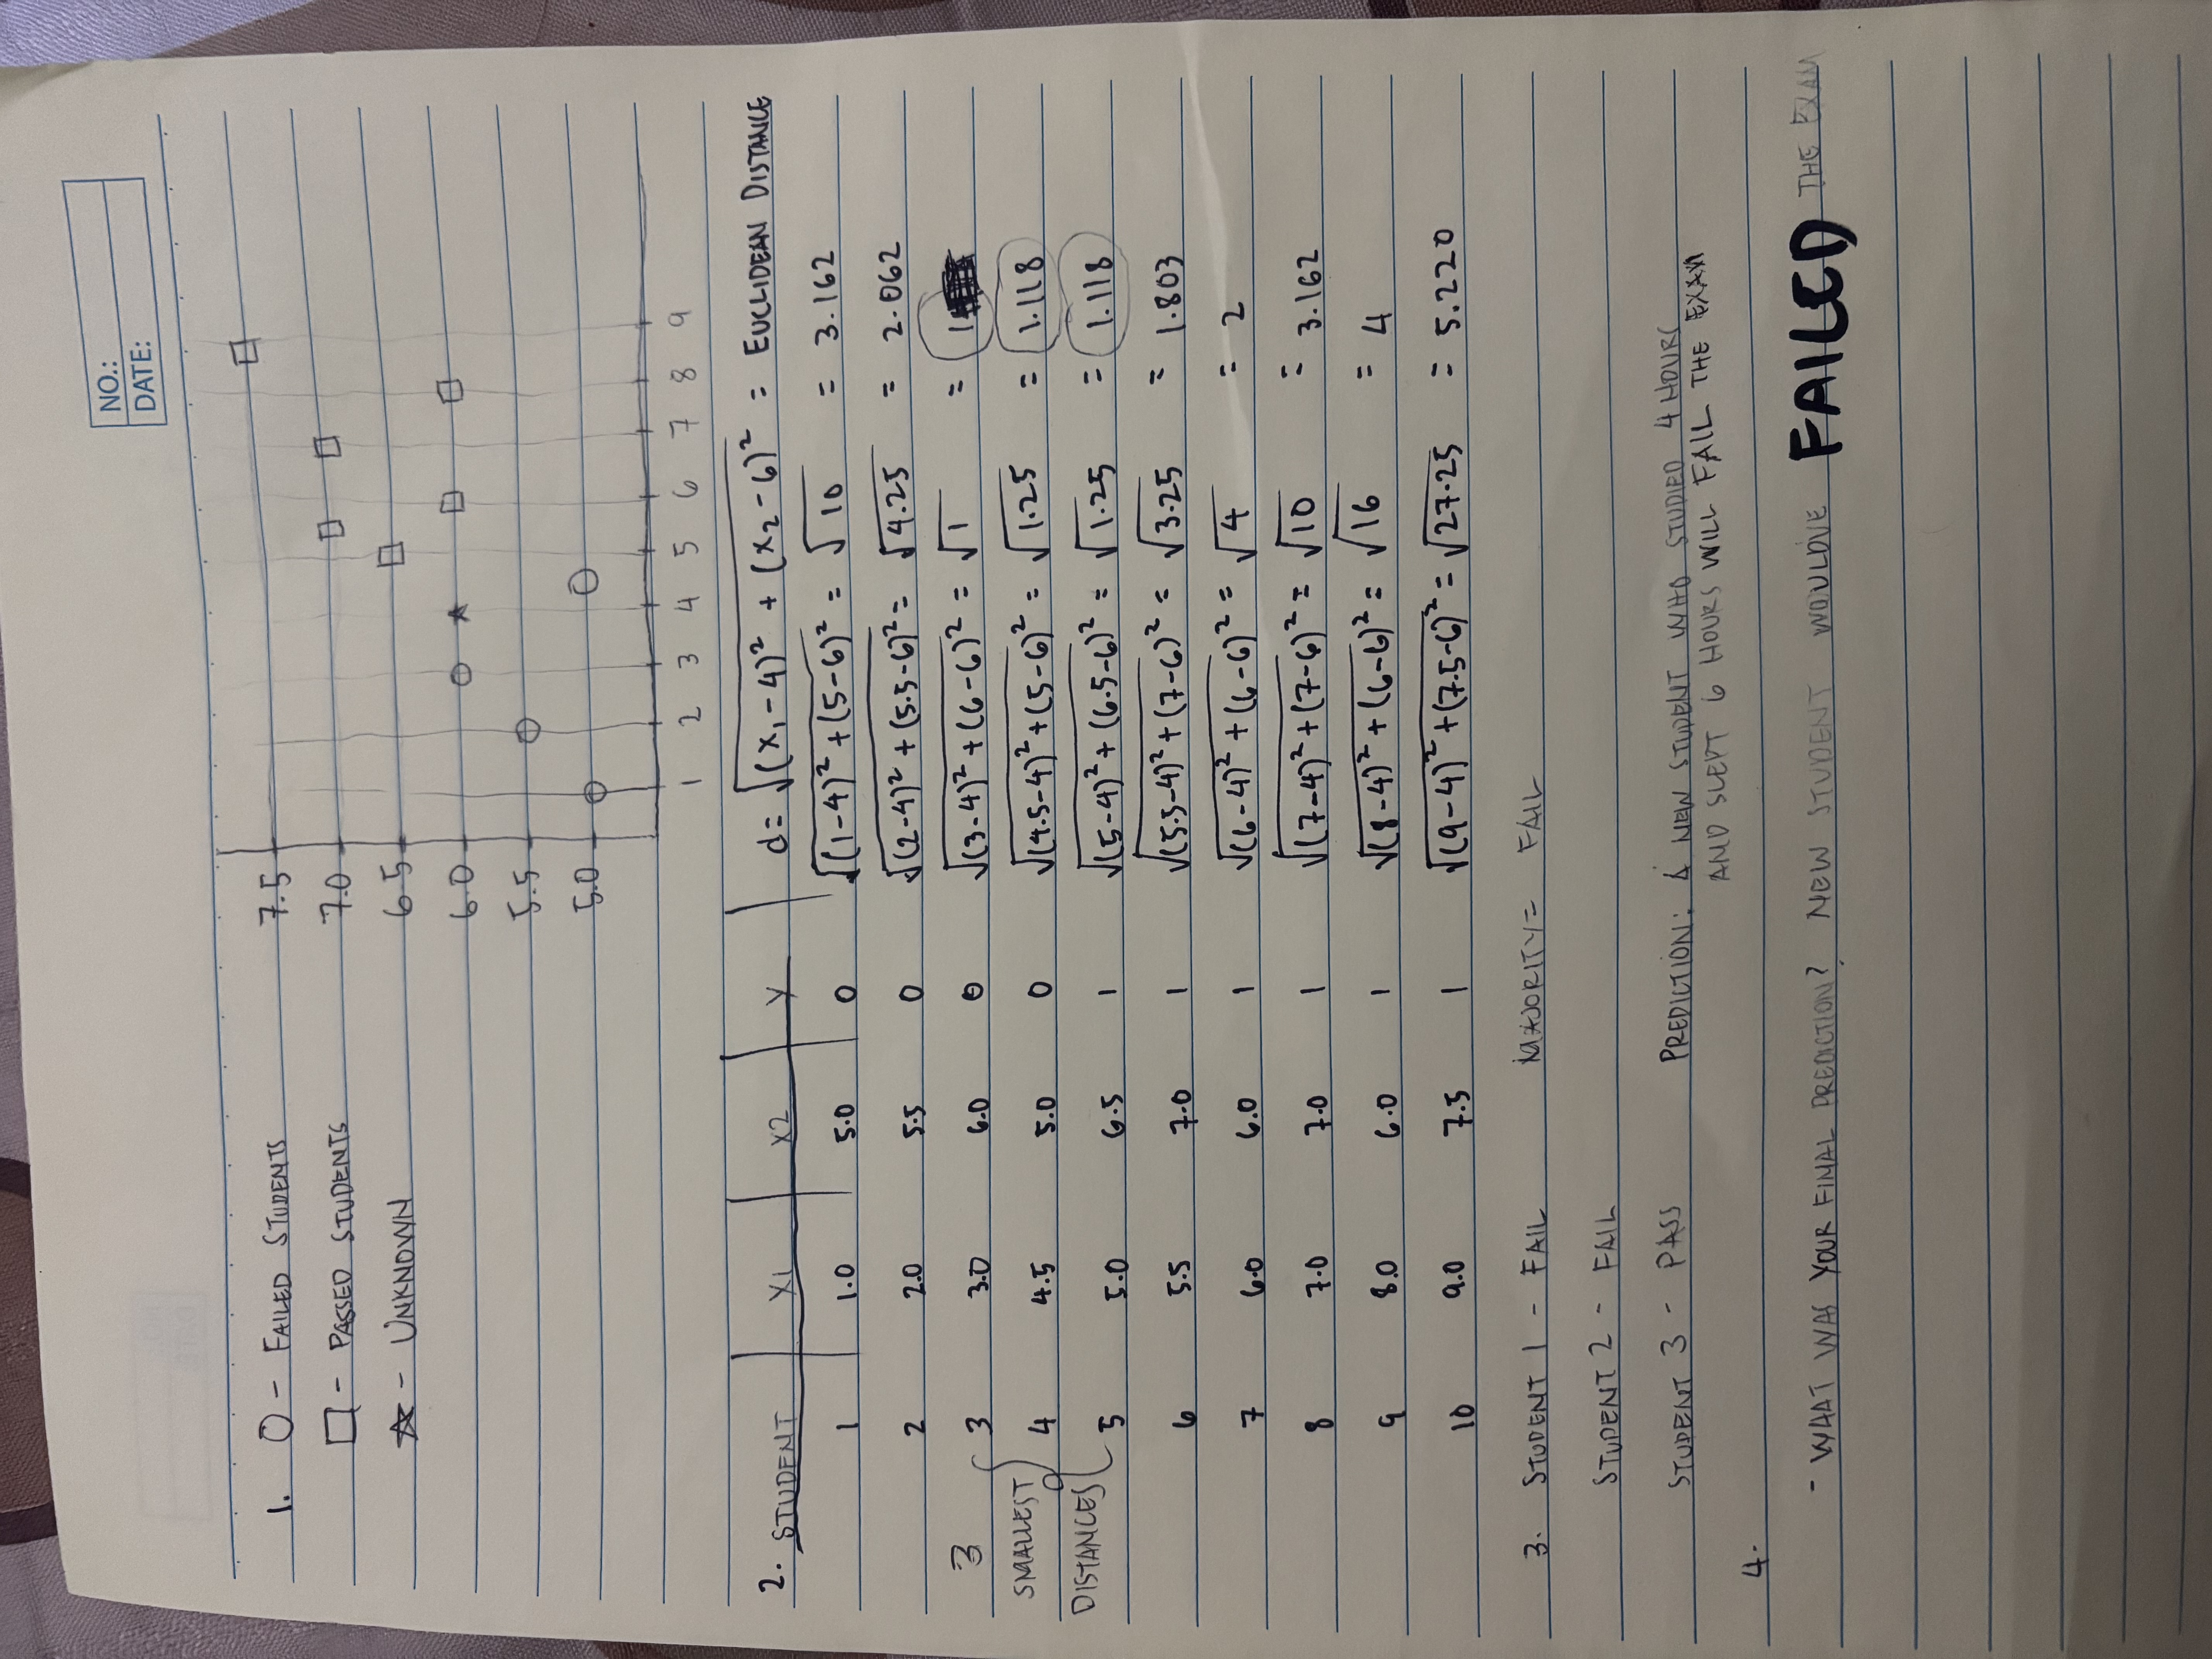 NO.:
DATE:
1. O - FAILED STUDENTS
□ - PASSED STUDENTS
☆ - UNKNOWN
7.5
7.0
6.5
6.0
5.5
5.0
1 2 3 4 5 6 7 8 9
2. STUDENT X1 X2 Y d = √(x₁-4)² + (x₂-6)² = EUCLIDEAN DISTANCE
1 1.0 5.0 0 √(1-4)² + (5-6)² = √10 = 3.162
2 2.0 5.5 0 √(2-4)² + (5.5-6)² = √4.25 = 2.062
3 3.0 6.0 0 √(3-4)² + (6-6)² = √1 = 1
4 4.5 5.0 0 √(4.5-4)² + (5-6)² = √1.25 = 1.118
5 5.0 6.5 1 √(5-4)² + (6.5-6)² = √1.25 = 1.118
3
SMALLEST
DISTANCES
6 5.5 7.0 1 √(5.5-4)² + (7-6)² = √3.25 = 1.803
7 6.0 6.0 1 √(6-4)² + (6-6)² = √4 = 2
8 7.0 7.0 1 √(7-4)² + (7-6)² = √10 = 3.162
9 8.0 6.0 1 √(8-4)² + (6-6)² = √16 = 4
10 9.0 7.5 1 √(9-4)² + (7.5-6)² = √27.25 = 5.220
3. STUDENT 1 - FAIL MAJORITY = FAIL
STUDENT 2 - FAIL
STUDENT 3 - PASS PREDICTION: A NEW STUDENT WHO STUDIED 4 HOURS
AND SLEPT 6 HOURS WILL FAIL THE EXAM
4.
- WHAT WAS YOUR FINAL PREDICTION? NEW STUDENT WOULDVE FAILED THE EXAM